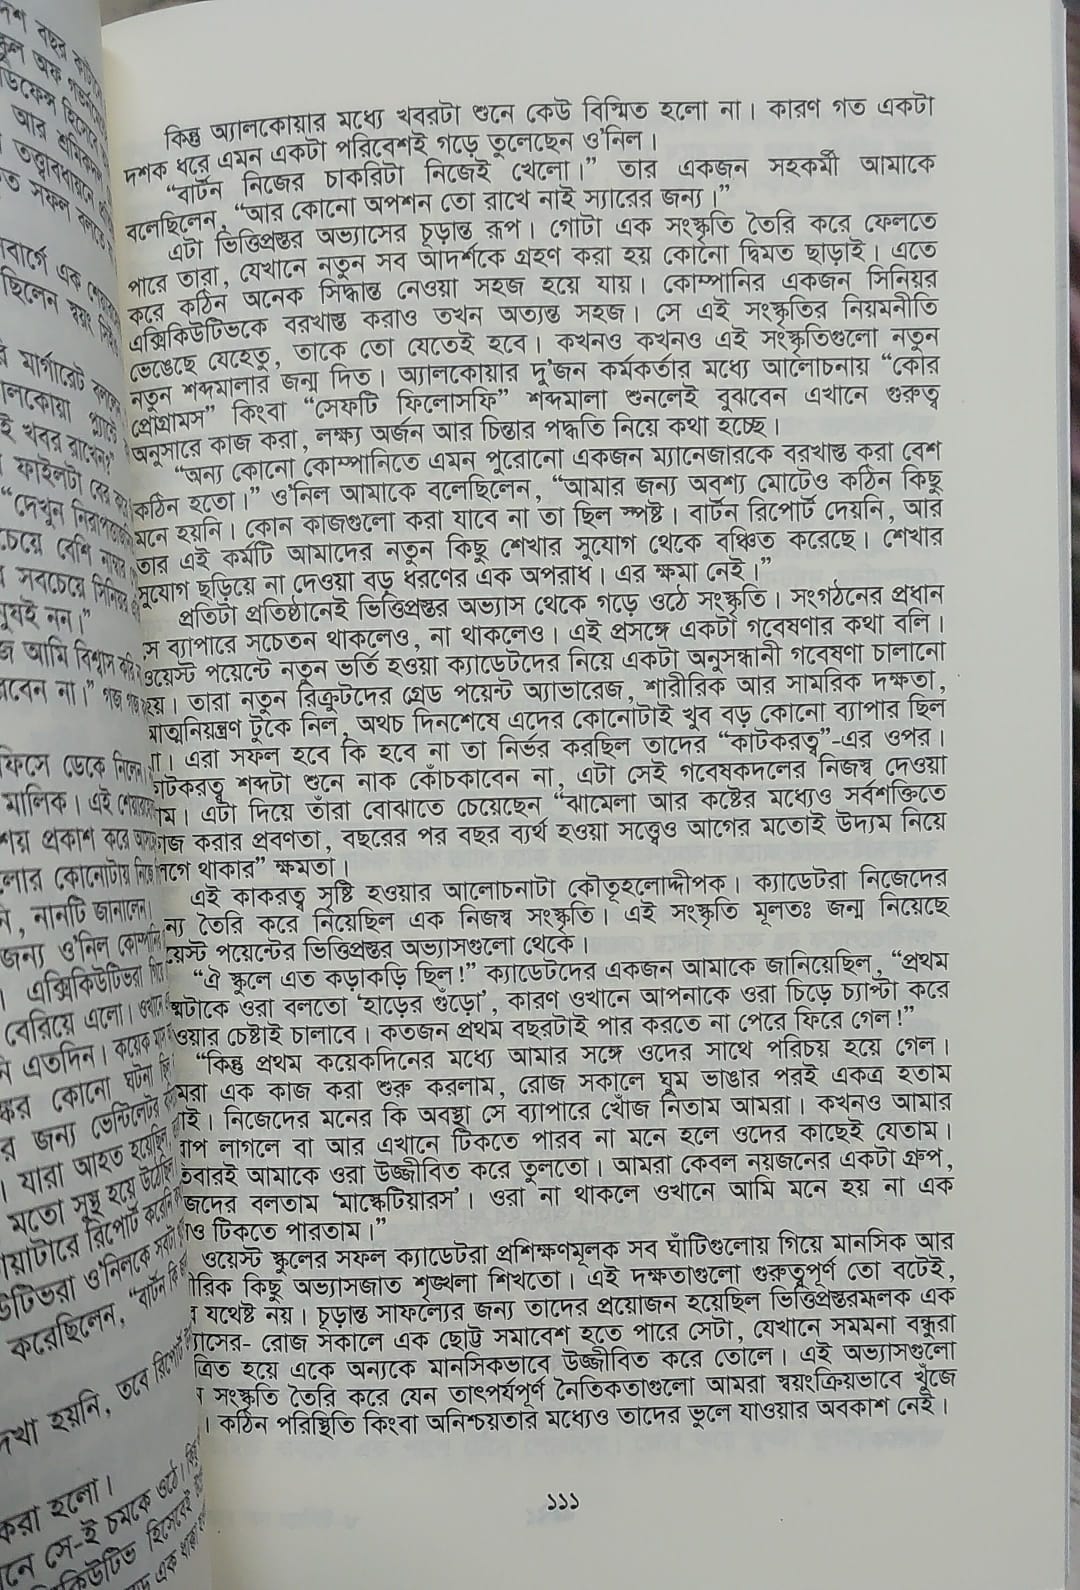 কিন্তু অ্যালকোয়ার মধ্যে খবরটা শুনে কেউ বিস্মিত হলো না। কারণ গত একটা
দশক ধরে এমন একটা পরিবেশই গড়ে তুলেছেন ও'নিল।
“বার্টন নিজের চাকরিটা নিজেই খেলো।” তার একজন সহকর্মী আমাকে
বলেছিলেন, “আর কোনো অপশন তো রাখে নাই স্যারের জন্য।”
এটা ভিত্তিপ্রস্তর অভ্যাসের চূড়ান্ত রূপ। গোটা এক সংস্কৃতি তৈরি করে ফেলতে
পারে তারা, যেখানে নতুন সব আদর্শকে গ্রহণ করা হয় কোনো দ্বিমত ছাড়াই। এতে
করে কঠিন অনেক সিদ্ধান্ত নেওয়া সহজ হয়ে যায়। কোম্পানির একজন সিনিয়র
এক্সিকিউটিভকে বরখাস্ত করাও তখন অত্যন্ত সহজ। সে এই সংস্কৃতির নিয়মনীতি
ভেঙেছে যেহেতু, তাকে তো যেতেই হবে। কখনও কখনও এই সংস্কৃতিগুলো নতুন
নতুন শব্দমালার জন্ম দিত। অ্যালকোয়ার দু'জন কর্মকর্তার মধ্যে আলোচনায় “কোর
প্রোগ্রামস” কিংবা “সেফটি ফিলোসফি” শব্দমালা শুনলেই বুঝবেন এখানে গুরুত্ব
অনুসারে কাজ করা, লক্ষ্য অর্জন আর চিন্তার পদ্ধতি নিয়ে কথা হচ্ছে।
“অন্য কোনো কোম্পানিতে এমন পুরোনো একজন ম্যানেজারকে বরখাস্ত করা বেশ
কঠিন হতো।” ও'নিল আমাকে বলেছিলেন, “আমার জন্য অবশ্য মোটেও কঠিন কিছু
মনে হয়নি। কোন কাজগুলো করা যাবে না তা ছিল স্পষ্ট। বার্টন রিপোর্ট দেয়নি, আর
তার এই কর্মটি আমাদের নতুন কিছু শেখার সুযোগ থেকে বঞ্চিত করেছে। শেখার
সুযোগ ছড়িয়ে না দেওয়া বড় ধরণের এক অপরাধ। এর ক্ষমা নেই।”
প্রতিটা প্রতিষ্ঠানেই ভিত্তিপ্রস্তর অভ্যাস থেকে গড়ে ওঠে সংস্কৃতি। সংগঠনের প্রধান
স ব্যাপারে সচেতন থাকলেও, না থাকলেও। এই প্রসঙ্গে একটা গবেষণার কথা বলি।
ওয়েস্ট পয়েন্টে নতুন ভর্তি হওয়া ক্যাডেটদের নিয়ে একটা অনুসন্ধানী গবেষণা চালানো
হয়। তারা নতুন রিক্রুটদের গ্রেড পয়েন্ট অ্যাভারেজ, শারীরিক আর সামরিক দক্ষতা,
াত্মনিয়ন্ত্রণ টুকে নিল, অথচ দিনশেষে এদের কোনোটাই খুব বড় কোনো ব্যাপার ছিল
া। এরা সফল হবে কি হবে না তা নির্ভর করছিল তাদের “কাটকরত্ব”-এর ওপর।
াটকরত্ব শব্দটা শুনে নাক কোঁচকাবেন না, এটা সেই গবেষকদলের নিজস্ব দেওয়া
াম। এটা দিয়ে তাঁরা বোঝাতে চেয়েছেন “ঝামেলা আর কষ্টের মধ্যেও সর্বশক্তিতে
াজ করার প্রবণতা, বছরের পর বছর ব্যর্থ হওয়া সত্ত্বেও আগের মতোই উদ্যম নিয়ে
লেগে থাকার” ক্ষমতা।
এই কাকরত্ব সৃষ্টি হওয়ার আলোচনাটা কৌতূহলোদ্দীপক। ক্যাডেটরা নিজেদের
ন্য তৈরি করে নিয়েছিল এক নিজস্ব সংস্কৃতি। এই সংস্কৃতি মূলতঃ জন্ম নিয়েছে
য়েস্ট পয়েন্টের ভিত্তিপ্রস্তর অভ্যাসগুলো থেকে।
“ঐ স্কুলে এত কড়াকড়ি ছিল!” ক্যাডেটদের একজন আমাকে জানিয়েছিল, “প্রথম
টাকে ওরা বলতো ‘হাড়ের গুঁড়ো’, কারণ ওখানে আপনাকে ওরা চিড়ে চ্যাপ্টা করে
ওয়ার চেষ্টাই চালাবে। কতজন প্রথম বছরটাই পার করতে না পেরে ফিরে গেল!”
“কিন্তু প্রথম কয়েকদিনের মধ্যে আমার সঙ্গে ওদের সাথে পরিচয় হয়ে গেল।
মরা এক কাজ করা শুরু করলাম, রোজ সকালে ঘুম ভাঙার পরই একত্র হতাম
াই। নিজেদের মনের কি অবস্থা সে ব্যাপারে খোঁজ নিতাম আমরা। কখনও আমার
াপ লাগলে বা আর এখানে টিকতে পারব না মনে হলে ওদের কাছেই যেতাম।
তবারই আমাকে ওরা উজ্জীবিত করে তুলতো। আমরা কেবল নয়জনের একটা গ্রুপ,
জদের বলতাম ‘মাস্কেটিয়ারস’। ওরা না থাকলে ওখানে আমি মনে হয় না এক
ও টিকতে পারতাম।”
ওয়েস্ট স্কুলের সফল ক্যাডেটরা প্রশিক্ষণমূলক সব ঘাঁটিগুলোয় গিয়ে মানসিক আর
ীরিক কিছু অভ্যাসজাত শৃঙ্খলা শিখতো। এই দক্ষতাগুলো গুরুত্বপূর্ণ তো বটেই,
যথেষ্ট নয়। চূড়ান্ত সাফল্যের জন্য তাদের প্রয়োজন হয়েছিল ভিত্তিপ্রস্তরমূলক এক
্যাসের- রোজ সকালে এক ছোট্ট সমাবেশ হতে পারে সেটা, যেখানে সমমনা বন্ধুরা
ত্রিত হয়ে একে অন্যকে মানসিকভাবে উজ্জীবিত করে তোলে। এই অভ্যাসগুলো
সংস্কৃতি তৈরি করে যেন তাৎপর্যপূর্ণ নৈতিকতাগুলো আমরা স্বয়ংক্রিয়ভাবে খুঁজে
। কঠিন পরিস্থিতি কিংবা অনিশ্চয়তার মধ্যেও তাদের ভুলে যাওয়ার অবকাশ নেই।
১১১